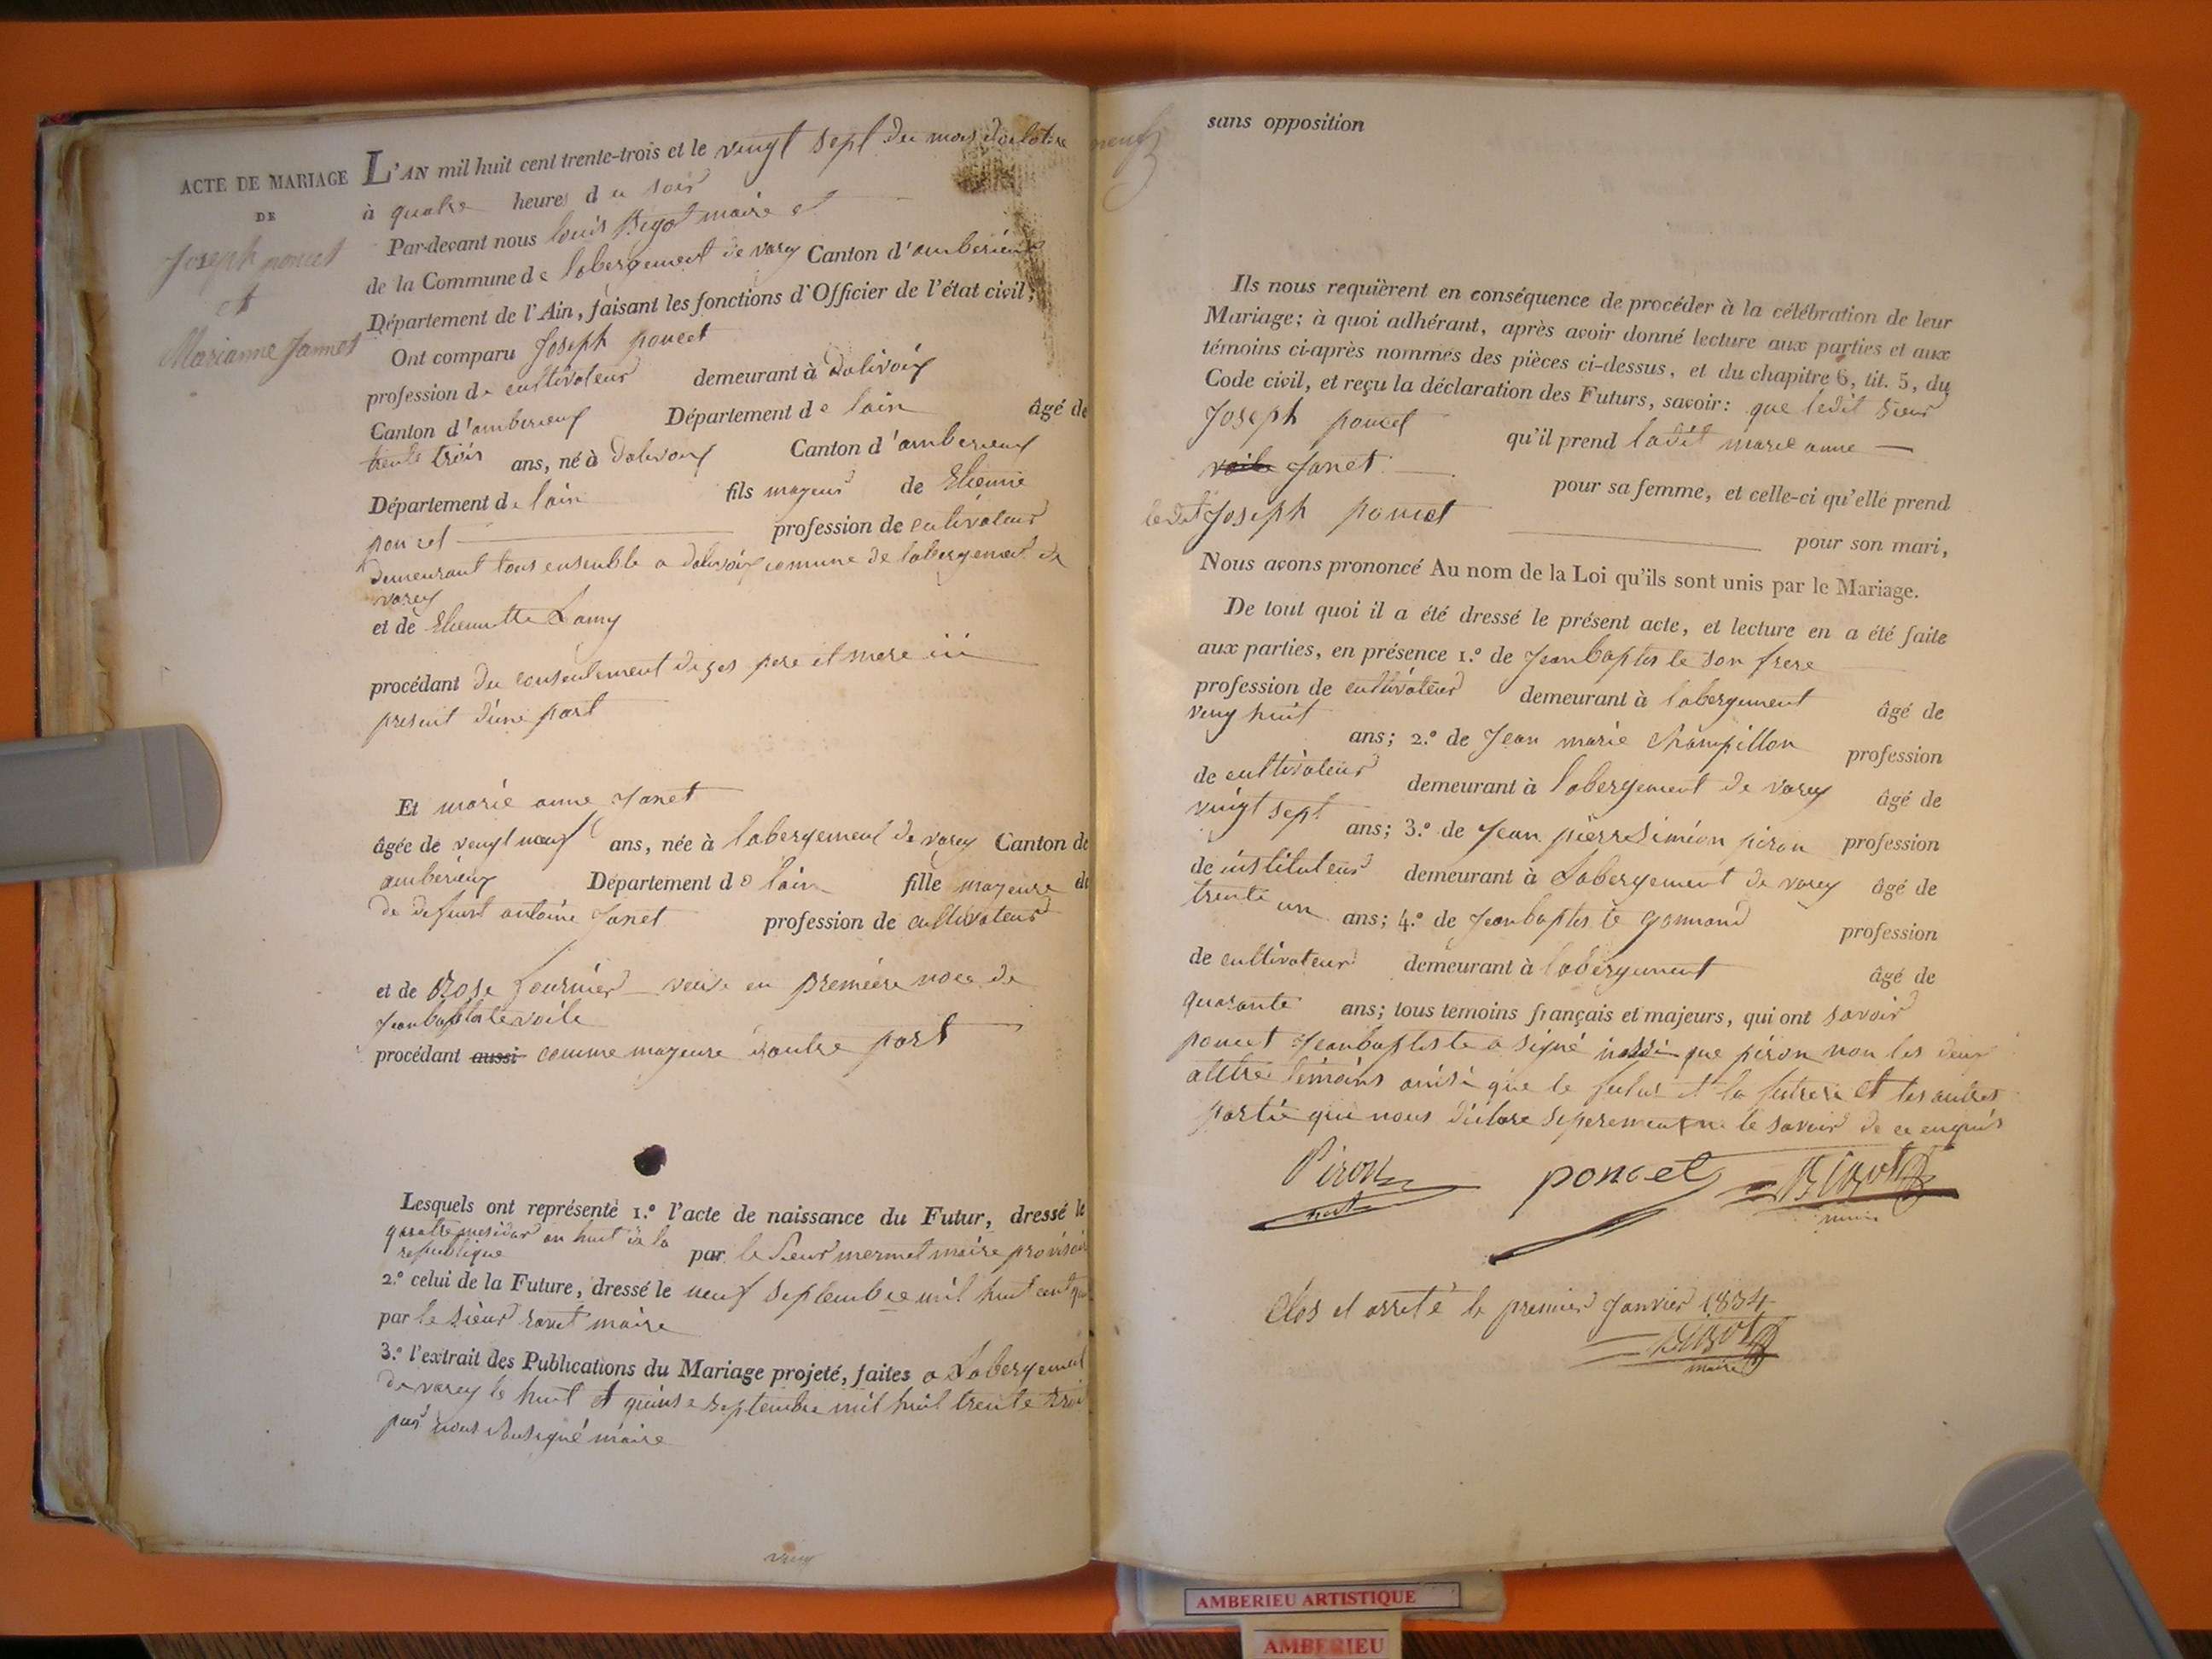 ACTE DE MARIAGE
DE
Joseph poncet
et
Marianne Jannet
L'AN mil huit cent trente-trois et le vingt sept du mois d'octobre
à quatre heures du soir
Par-devant nous louis Bigot maire et
de la Commune de labergement de varey Canton d'amberieux
Département de l'Ain, faisant les fonctions d'Officier de l'état civil;
Ont comparu Joseph poncet
profession de cultivateur demeurant à dalivoix
Canton d'amberieux Département de lain âgé de
trente trois ans, né à dalivoix Canton d'amberieux
Département de lain fils mageur de Etienne
poncet profession de cultivateur
demeurant tous ensemble a dalivoix comune de labergement de
varey
et de Etiennette Lamy
procédant du consentement de ses pere et mere ici
present d'une part
Et marie anne Janet
âgée de vengt neuf ans, née à labergement de varey Canton de
amberieux Département de lain fille mageure de
de defeunt antoine Janet profession de cultivateur
et de Rose fournier veuve en premiere noce de
Jeanbaptiste voile
procédant aussi comme mageure d'autre part
Lesquels ont représenté 1.º l'acte de naissance du Futur, dressé le
quatre mesidor an huit de la
republique par le Sieur mermet maire provisoir
2.º celui de la Future, dressé le neuf septembre mil huit cent
par le sieur Janet maire
3.º l'extrait des Publications du Mariage projeté, faites a Labergement
de varey le huit et quinse septembre mil huit trente trois
par nous sousigné maire
sans opposition
Ils nous requièrent en conséquence de procéder à la célébration de leur
Mariage; à quoi adhérant, après avoir donné lecture aux parties et aux
témoins ci-après nommés des pièces ci-dessus, et du chapitre 6, tit. 5, du
Code civil, et reçu la déclaration des Futurs, savoir: que ledit sieur
Joseph poncet qu'il prend ladit marie anne
voile Janet pour sa femme, et celle-ci qu'elle prend
ledit Joseph poncet pour son mari,
Nous avons prononcé Au nom de la Loi qu'ils sont unis par le Mariage.
De tout quoi il a été dressé le présent acte, et lecture en a été faite
aux parties, en présence 1.º de Jeanbaptiste son frere
profession de cultivateur demeurant à labergement âgé de
veng huit ans; 2.º de Jean marie champillon profession
de cultivateur demeurant à labergement de varey âgé de
vingt sept ans; 3.º de Jean pierre Siméon piron profession
de instituteur demeurant à Labergement de varey âgé de
trente un ans; 4.º de Jeanbaptiste gonnand profession
de cultivateur demeurant à labergement âgé de
quarante ans; tous témoins français et majeurs, qui ont savoir
poncet Jeanbaptiste a signé que piron non les deux
attre témoins ainsi que le futur et la future et les autres
partie qui nous déclare separement ne le savoir de ce enquis
Piron poncet Bigot
maire
Clos et arreté le premier Janvier 1834
Bigot
maire
AMBERIEU ARTISTIQUE
AMBERIEU